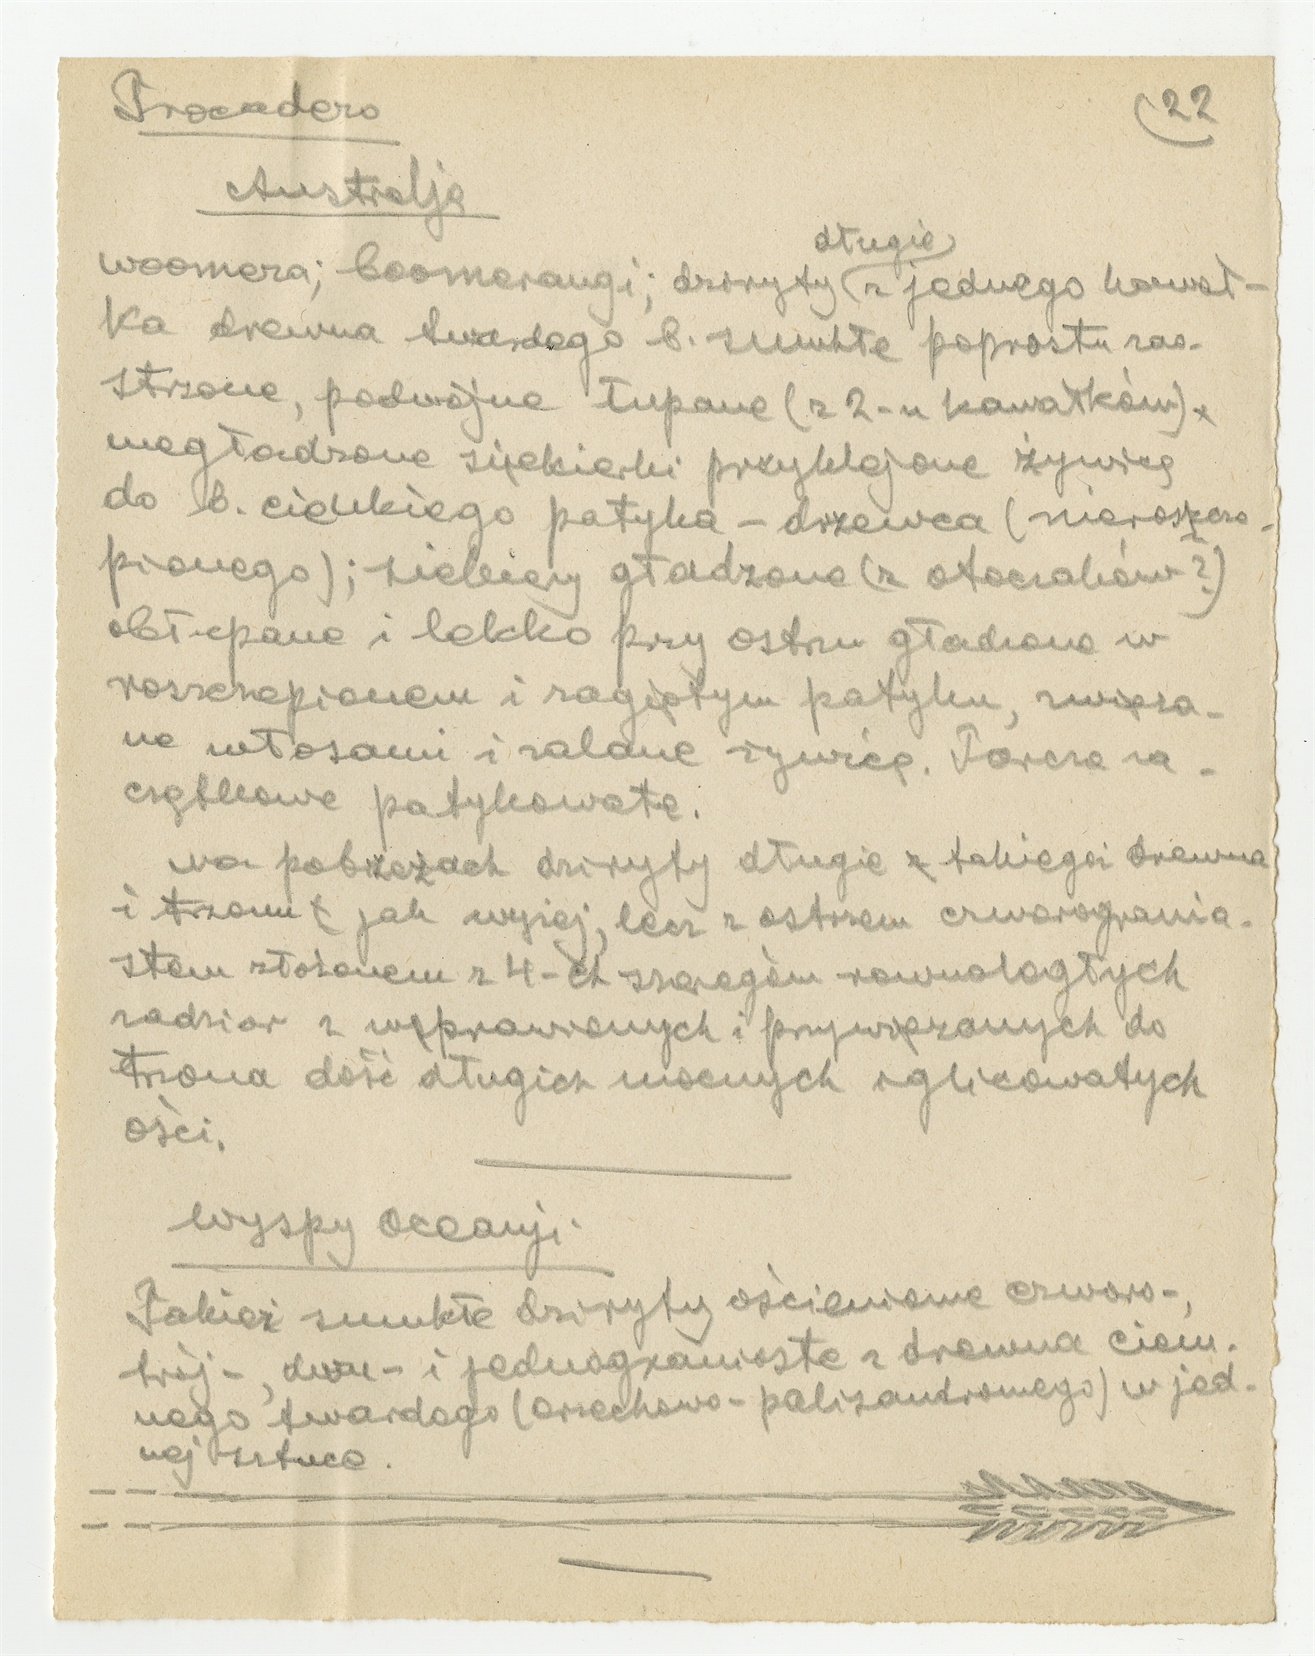 Trocadero
22
Australja
długie
woomera; boomerangi; dziryty z jednego kawał-
ka drewna twardego b. smukłe poprostu zao-
strzone, podwójne łupane (z 2-u kawałków)
niegładzone siekierki przyklejone żywicą
do b. cienkiego patyka - drzewca (nierozszcze-
pionego); siekiery gładzone (z otoczaków?)
obłupane i lekko przy ostrzu gładzone w
roszczepionem i zagiętym patyku, związa-
ne włosami i zalane żywicą. Tarcze za-
czątkowe patykowate.
na pobrzeżach dziryty długie z takiegoż drewna
i trzonu jak wyżej, lecz z ostrzem czworogrania-
stem złożonem z 4-ch szeregów równoległych
zadzior z wprawionych i przywiązanych do
trzona dość długich mocnych iglicowatych
ości.
Wyspy Oceanji.
Takież smukłe dziryty ościenione czworo-,
trój-, dwu- i jednograniaste z drewna ciem-
nego twardego (orzechowo-palizandrowego) w jed-
nej sztuce.